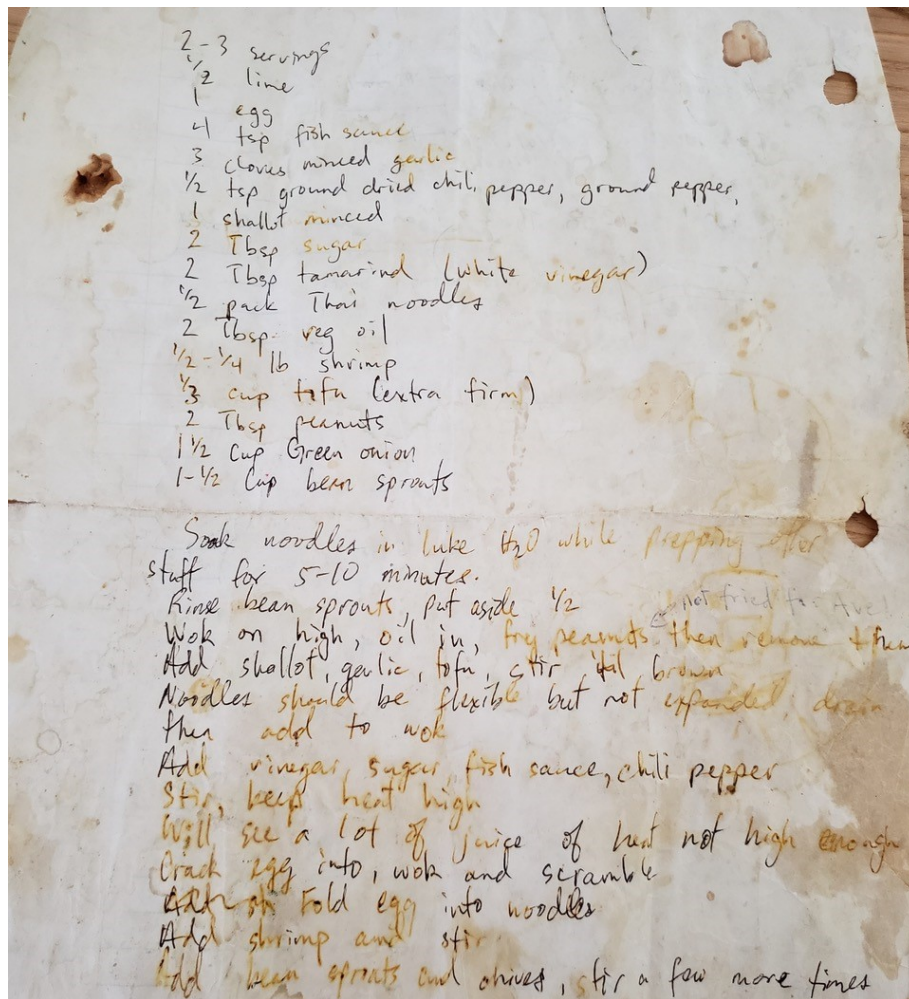 2-3 servings
1/2 lime
1 egg
4 tsp fish sauce
3 cloves minced garlic
1/2 tsp ground dried chili pepper, ground pepper,
1 shallot minced
2 Tbsp sugar
2 Tbsp tamarind (white vinegar)
1/2 pack Thai noodles
2 Tbsp veg oil
1/2-1/4 lb shrimp
1/3 cup tofu (extra firm)
2 Tbsp peanuts
1 1/2 Cup Green onion
1-1/2 Cup bean sprouts
Soak noodles in luke H2O while prepping other
stuff for 5-10 minutes.
Rinse bean sprouts, put aside 1/2
not fried for
Wok on high, oil in, fry peanuts then remove then
Add shallot, garlic, tofu, stir til brown
Noodles should be flexible but not expanded, drain
then add to wok
Add vinegar, sugar, fish sauce, chili pepper
Stir, keep heat high
Will see a lot of juice of heat not high enough
Crack egg into, wok and scramble
Fold egg into noodles
Add shrimp and stir
Add bean sprouts and chives, stir a few more times